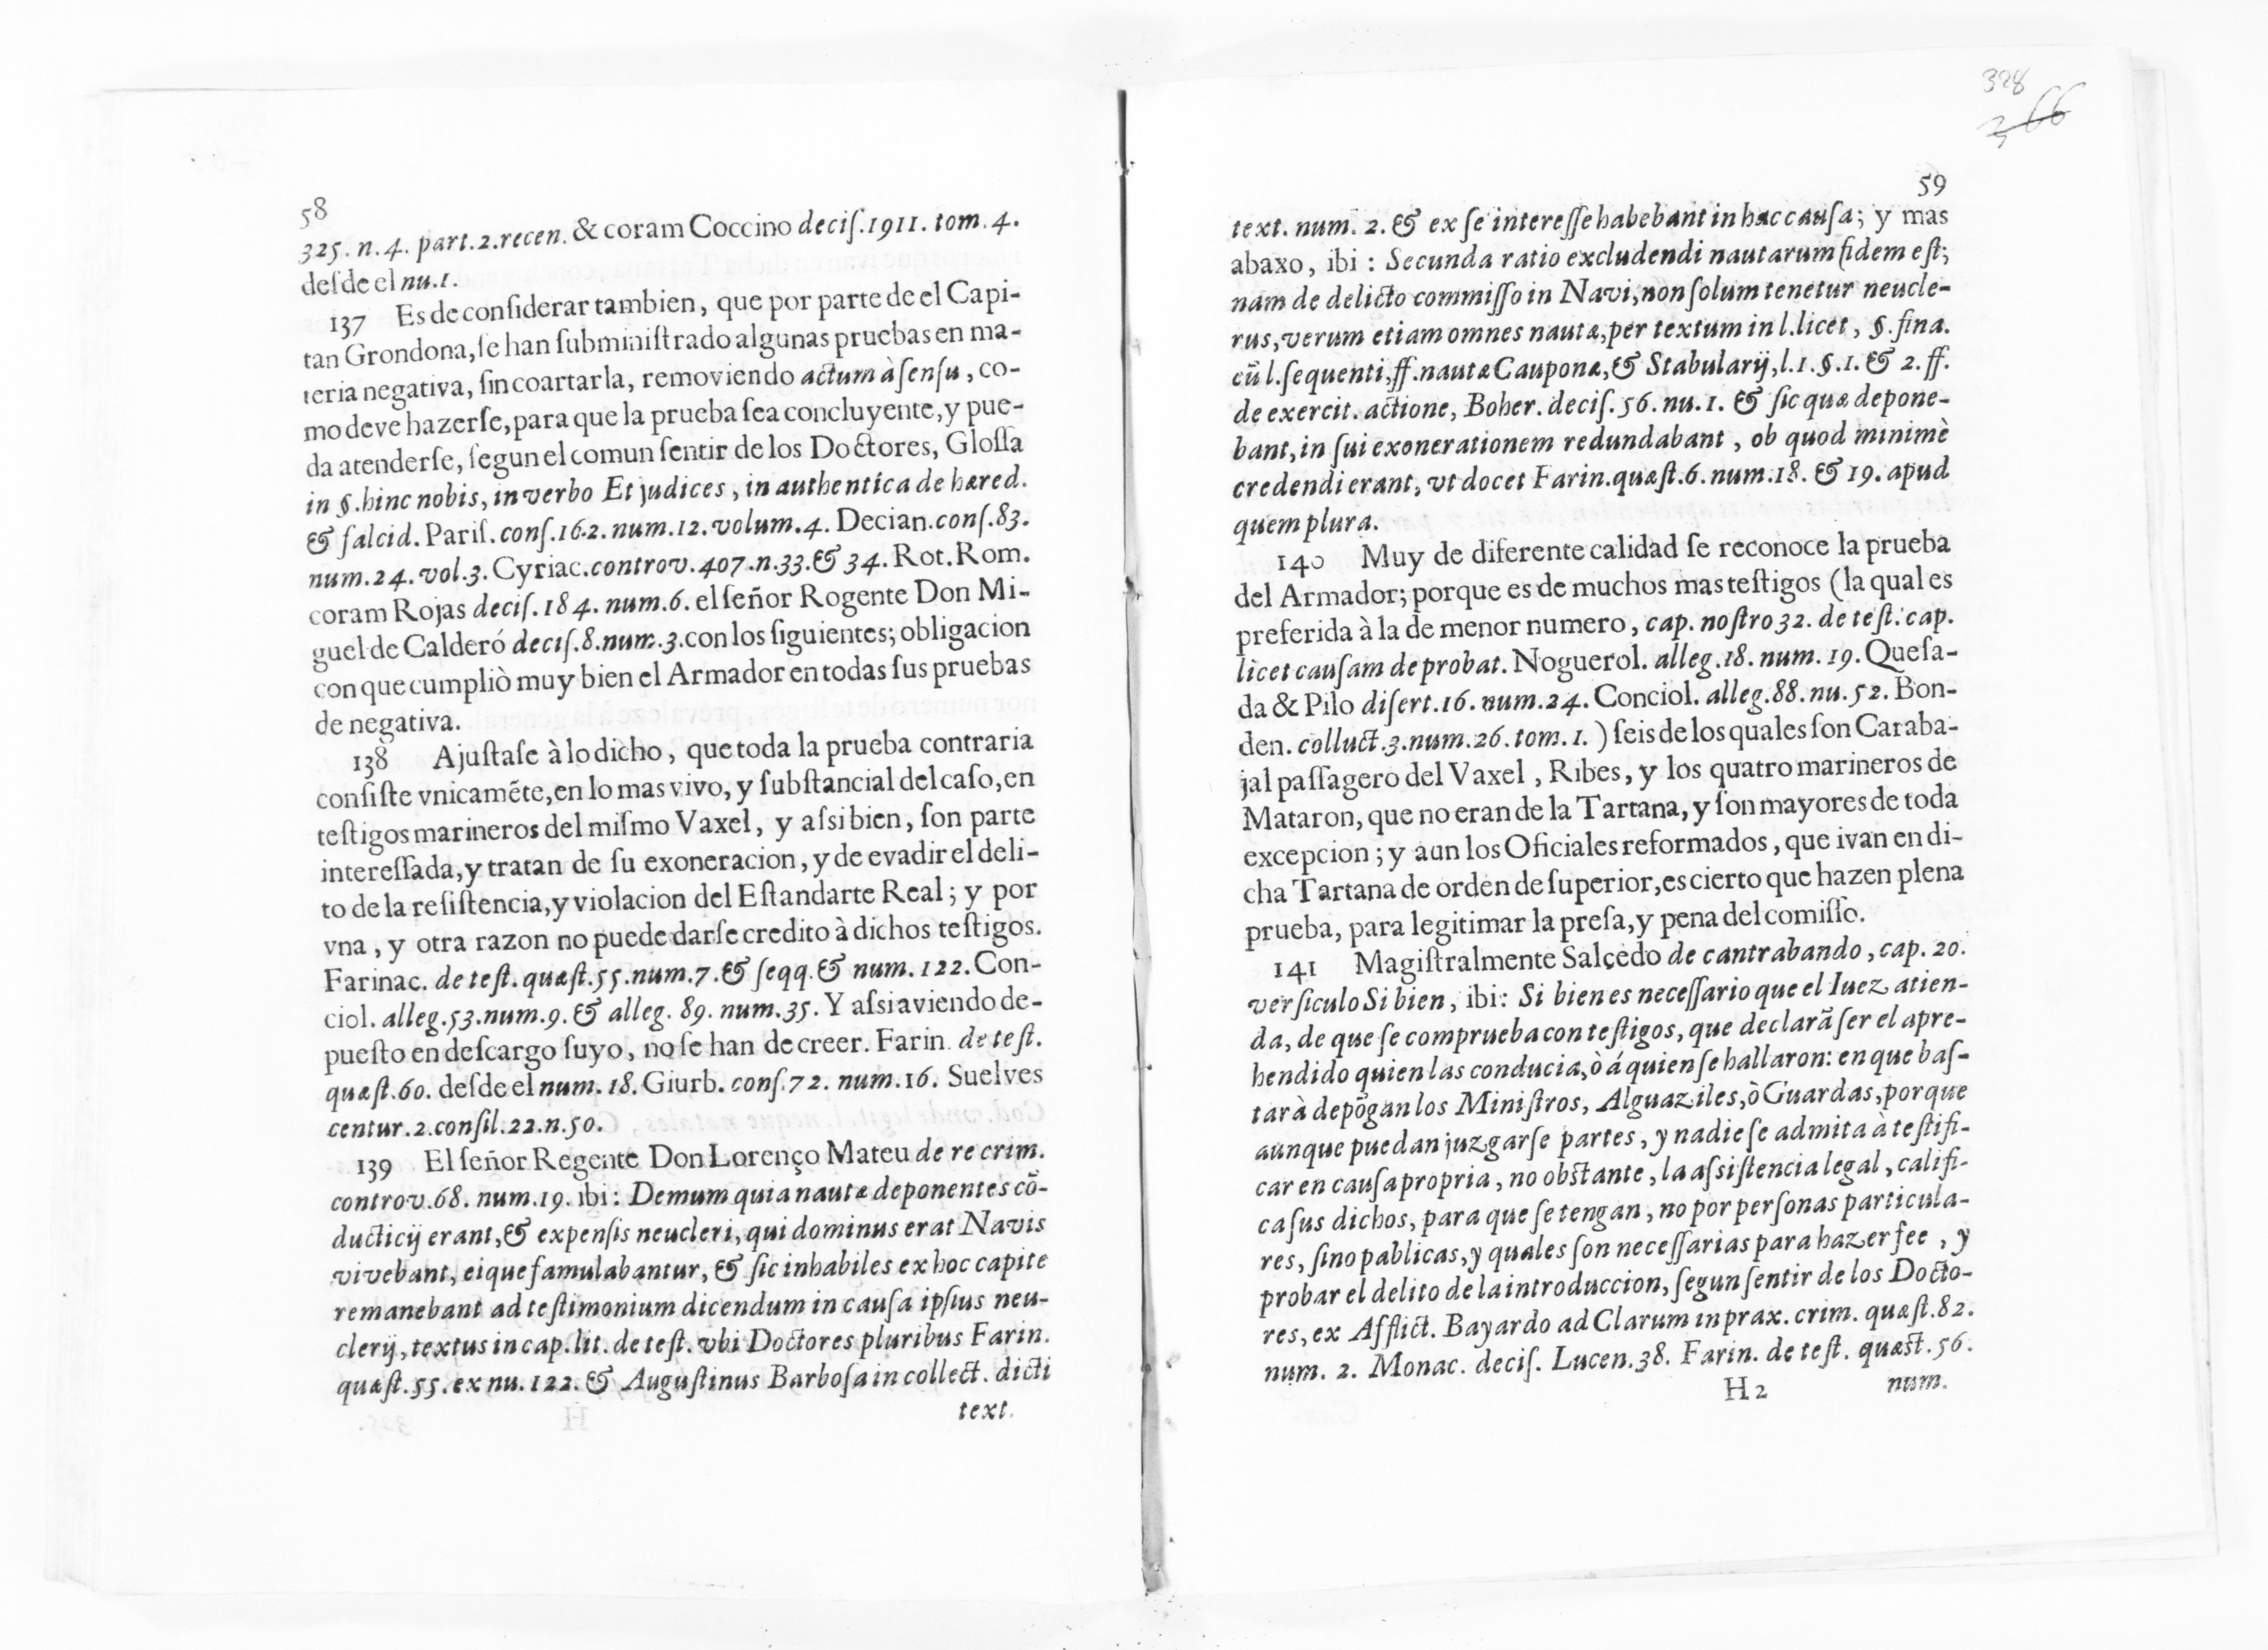 58
325. n. 4. part. 2. recen. & coram Coccino deciſ. 1911. tom. 4.
deſde el nu. 1.
137 Es de conſiderar tambien, que por parte de el Capi-
tan Grondona, ſe han ſubminiſtrado algunas pruebas en ma-
teria negativa, ſin coartarla, removiendo actum à ſenſu, co-
mo deve hazerſe, para que la prueba ſea concluyente, y pue-
da atenderſe, ſegun el comun ſentir de los Doctores, Gloſſa
in §. hinc nobis, in verbo Et judices, in authentica de hæred.
& falcid. Pariſ. conſ. 162. num. 12. volum. 4. Decian. conſ. 83.
num. 24. vol. 3. Cyriac. controv. 407. n. 33. & 34. Rot. Rom.
coram Rojas deciſ. 184. num. 6. el ſeñor Rogente Don Mi-
guel de Calderó deciſ. 8. num. 3. con los ſiguientes; obligacion
con que cumpliò muy bien el Armador en todas ſus pruebas
de negativa.
138 Ajuſtaſe à lo dicho, que toda la prueba contraria
conſiſte vnicamẽte, en lo mas vivo, y ſubſtancial del caſo, en
teſtigos marineros del miſmo Vaxel, y aſsi bien, ſon parte
intereſſada, y tratan de ſu exoneracion, y de evadir el deli-
to de la reſiſtencia, y violacion del Eſtandarte Real; y por
vna, y otra razon no puede darſe credito à dichos teſtigos.
Farinac. de teſt. quæſt. 55. num. 7. & ſeqq. & num. 122. Con-
ciol. alleg. 53. num. 9. & alleg. 89. num. 35. Y aſsi aviendo de-
pueſto en deſcargo ſuyo, no ſe han de creer. Farin. de teſt.
quæſt. 60. deſde el num. 18. Giurb. conſ. 72. num. 16. Suelves
centur. 2. conſil. 22. n. 50.
139 El ſeñor Regente Don Lorenço Mateu de re crim.
controv. 68. num. 19. ibi: Demum quia nautæ deponentes cõ-
ducticij erant, & expenſis neucleri, qui dominus erat Navis
vivebant, eique famulabantur, & ſic inhabiles ex hoc capite
remanebant ad teſtimonium dicendum in cauſa ipſius neu-
clerij, textus in cap. lit. de teſt. vbi Doctores pluribus Farin.
quæſt. 55. ex nu. 122. & Auguſtinus Barboſa in collect. dicti
text.
328
366
59
text. num. 2. & ex ſe intereſſe habebant in hac cauſa; y mas
abaxo, ibi: Secunda ratio excludendi nautarum fidem eſt;
nam de delicto commiſſo in Navi, non ſolum tenetur neucle-
rus, verum etiam omnes nautæ, per textum in l. licet, §. fina.
cũ l. ſequenti, ff. nautæ Cauponæ, & Stabularij, l. 1. §. 1. & 2. ff.
de exercit. actione, Boher. deciſ. 56. nu. 1. & ſic quæ depone-
bant, in ſui exonerationem redundabant, ob quod minimè
credendi erant, vt docet Farin. quæſt. 6. num. 18. & 19. apud
quem plura.
140 Muy de diferente calidad ſe reconoce la prueba
del Armador; porque es de muchos mas teſtigos (la qual es
preferida à la de menor numero, cap. noſtro 32. de teſt. cap.
licet cauſam de probat. Noguerol. alleg. 18. num. 19. Queſa-
da & Pilo diſert. 16. num. 24. Conciol. alleg. 88. nu. 52. Bon-
den. colluct. 3. num. 26. tom. 1. ) ſeis de los quales ſon Caraba-
jal paſſagero del Vaxel, Ribes, y los quatro marineros de
Mataron, que no eran de la Tartana, y ſon mayores de toda
excepcion; y aun los Oficiales reformados, que ivan en di-
cha Tartana de orden de ſuperior, es cierto que hazen plena
prueba, para legitimar la preſa, y pena del comiſſo.
141 Magiſtralmente Salçedo de cantrabando, cap. 20.
verſiculo Si bien, ibi: Si bien es neceſſario que el Iuez atien-
da, de que ſe comprueba con teſtigos, que declarã ſer el apre-
hendido quien las conducia, ò á quien ſe hallaron: en que baſ-
tarà depõgan los Miniſtros, Alguaziles, ò Guardas, porque
aunque puedan juzgarſe partes, y nadie ſe admita à teſtifi-
car en cauſa propria, no obſtante, la aſsiſtencia legal, califi-
ca ſus dichos, para que ſe tengan, no por perſonas particula-
res, ſino pablicas, y quales ſon neceſſarias para hazer fee, y
probar el delito de la introduccion, ſegun ſentir de los Docto-
res, ex Afflict. Bayardo ad Clarum in prax. crim. quæſt. 82.
num. 2. Monac. deciſ. Lucen. 38. Farin. de teſt. quæſt. 56.
H 2 num.